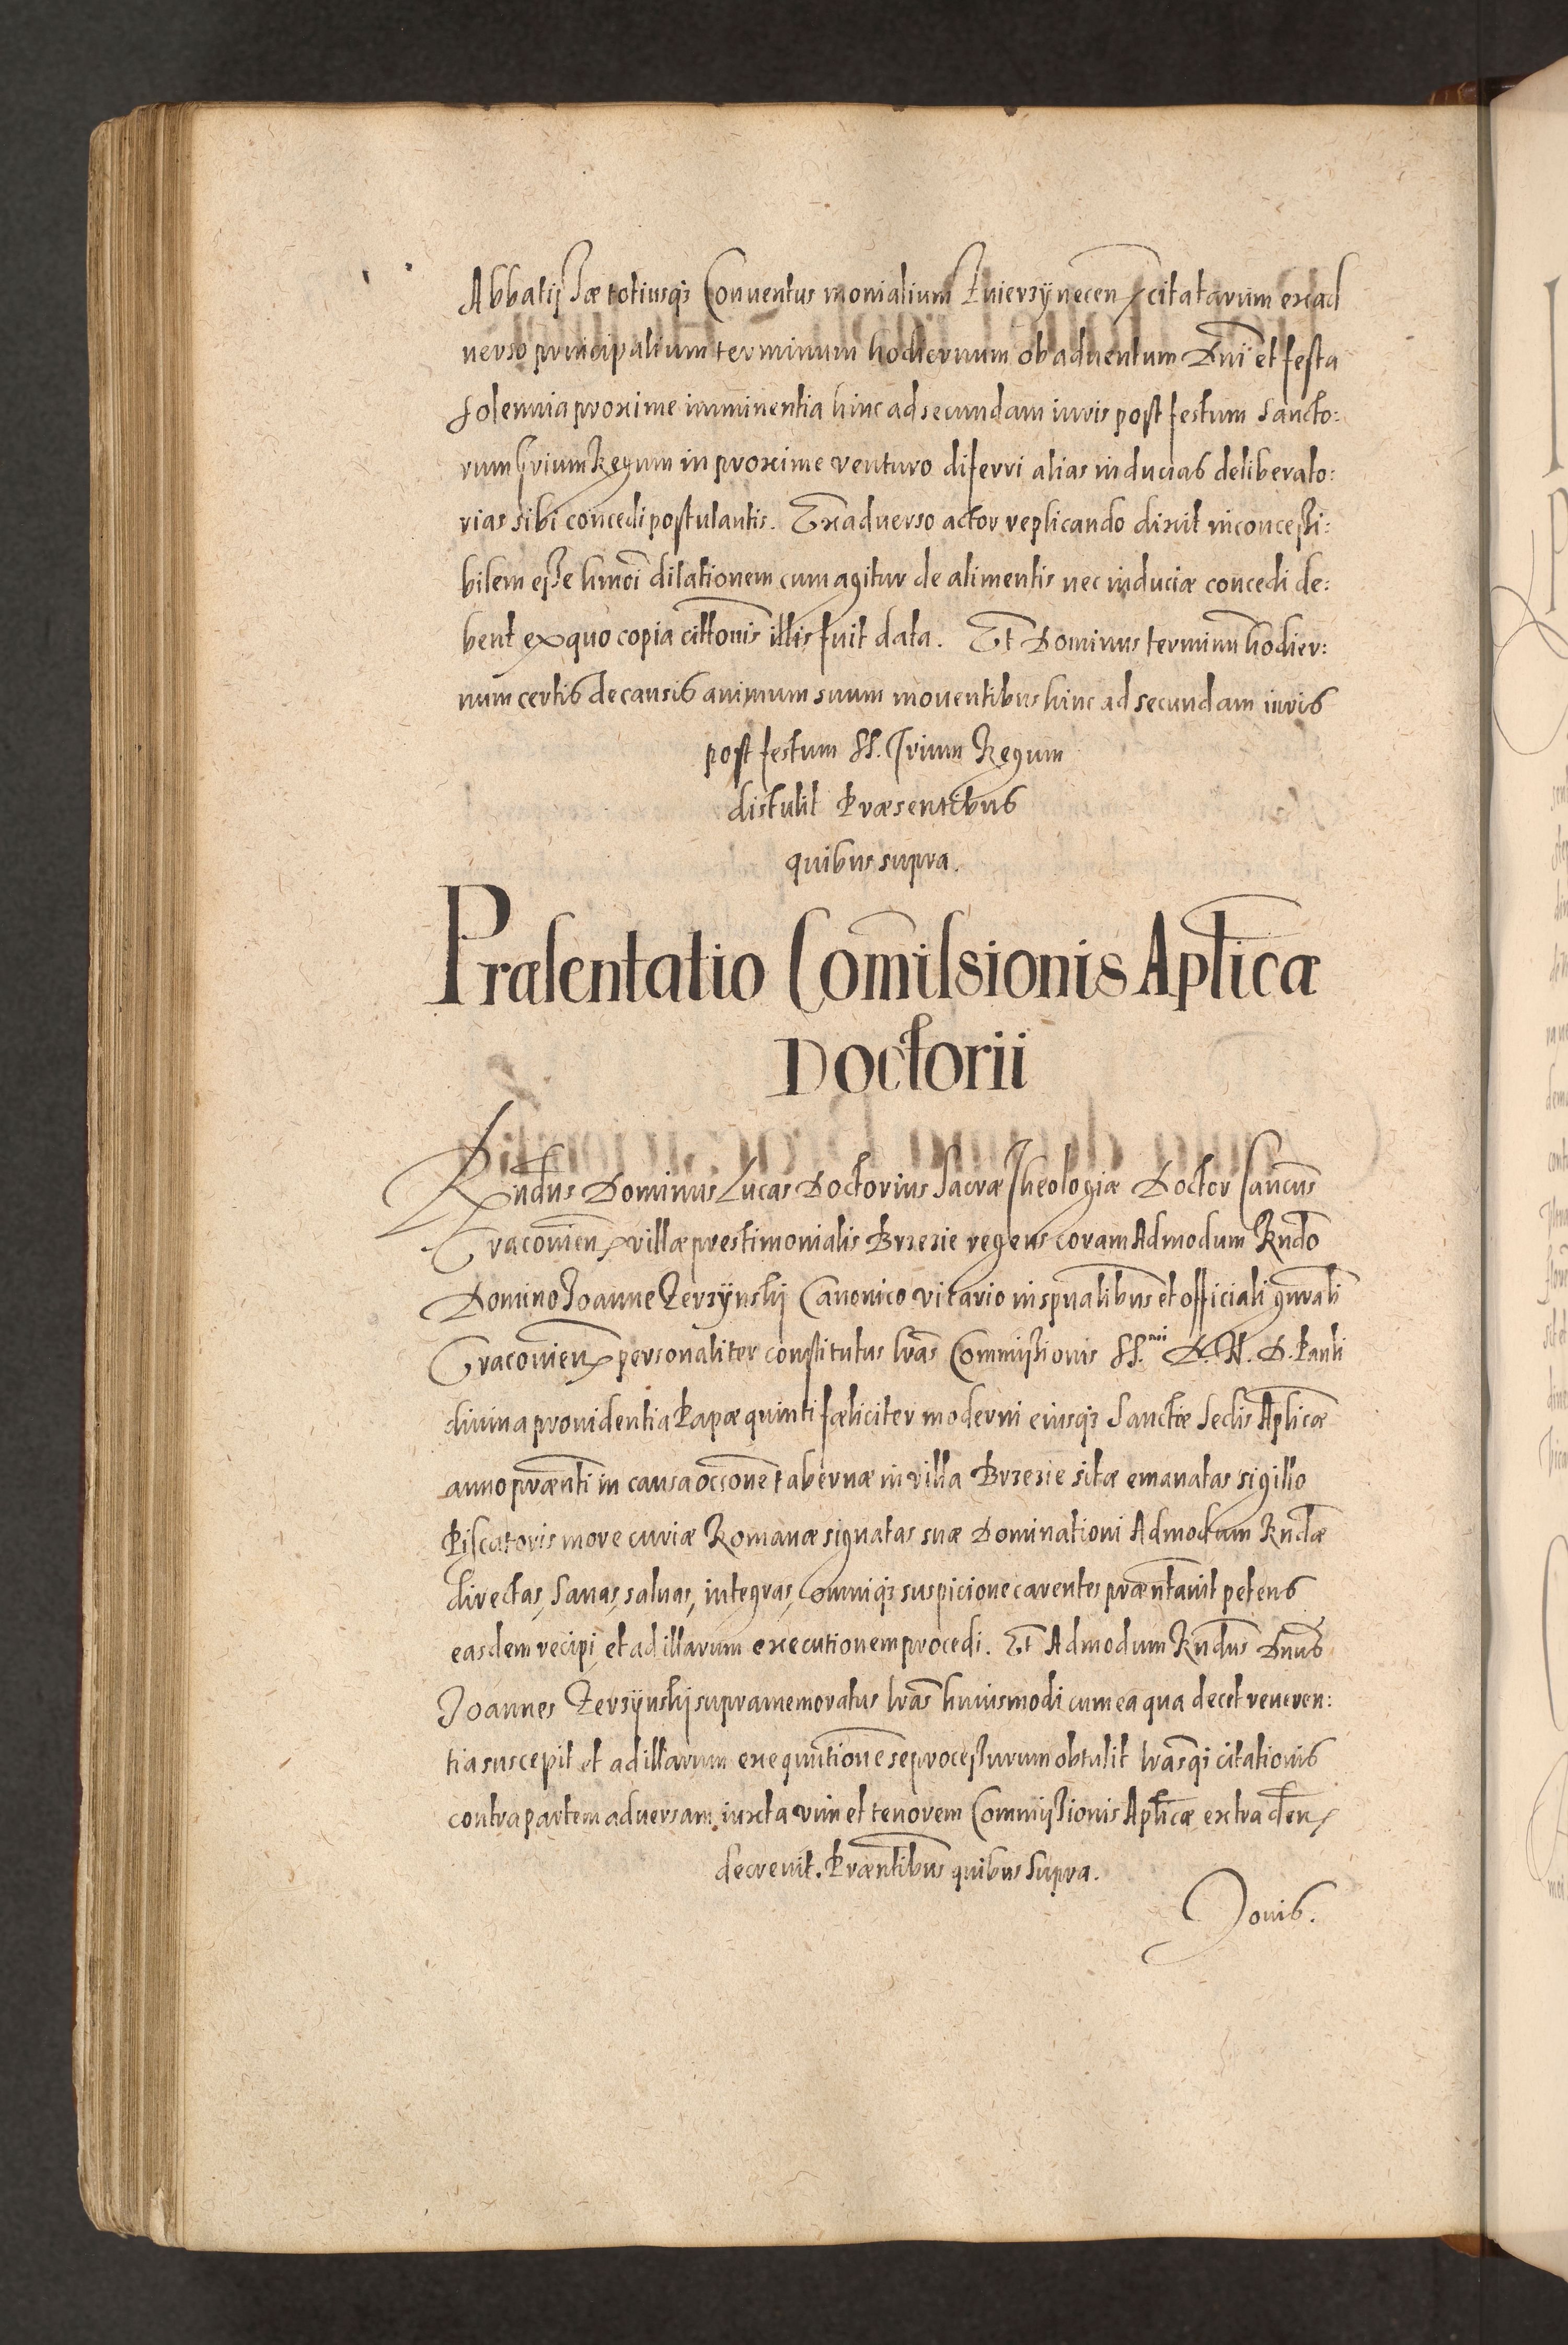 Abbatissæ totiusq3 Conuentus monialium Zwierzÿnecen citatarum exad
uerso principalium terminum hodiernum ob aduentum Dnī et festa
Solennia proxime imminentia hinc ad secundam iuris post festum Sancto:
rum Trium Regum in proxime venturo diferri alias inducias deliberato:
rias sibi concedi postulantis. Exaduerso actor replicando dixit inconcessi:
bilem esse hmoī dilationem cum agitur de alimentis nec induciæ concedi de:
bent ex quo copia cittōnis illis fuit data. Et Dominus terminū hodier:
num certis de causis animum suum mouentibus hinc ad secundam iuris
post festum SS. Trium Regum
distulit Præsentibus
quibus supra.
Præsentatio Com̄issionis Aptlicæ
Doctorii
Rndūs Dominus Lucas Doctorius Sacræ Theologiæ Doctor
Cracouien villæ prestimonialis Brzezie regens coram Admodum Rndō
Domino Joanne Zerzÿnskj Canonico vicario in spūalibus et officiali gnrāli
Cracouien personaliter constitutus lrās Commissionis SS.mi D. N. D. Pauli
diuina prouidentia Papæ quinti fæliciter moderni eiusq3 Sanctæ Sedis Aplicæ
anno præntī in causa occōne tabernæ in villa Brzezie sitæ emanatas sigillo
Piscatoris more curiæ Romanæ signatas suæ Dominationi Admodum Rndæ
directas, Sanas, saluas, integras, omniq3 suspicione carentes præntauit petens
easdem recipi, et ad illarum executionem procedi. Et Admodum Rndūs Dnūs
Joannes Zerzÿnskj supramemoratus lrās huiusmodi cum ea qua decet reueren:
tia suscepit et ad illarum exequutionē se processurum obtulit lrāsq3 citationis
contra partem aduersam iuxta vim et tenorem Commissionis Aptlicæ extra den
decreuit. Præntibus quibus Supra.
Jouis.